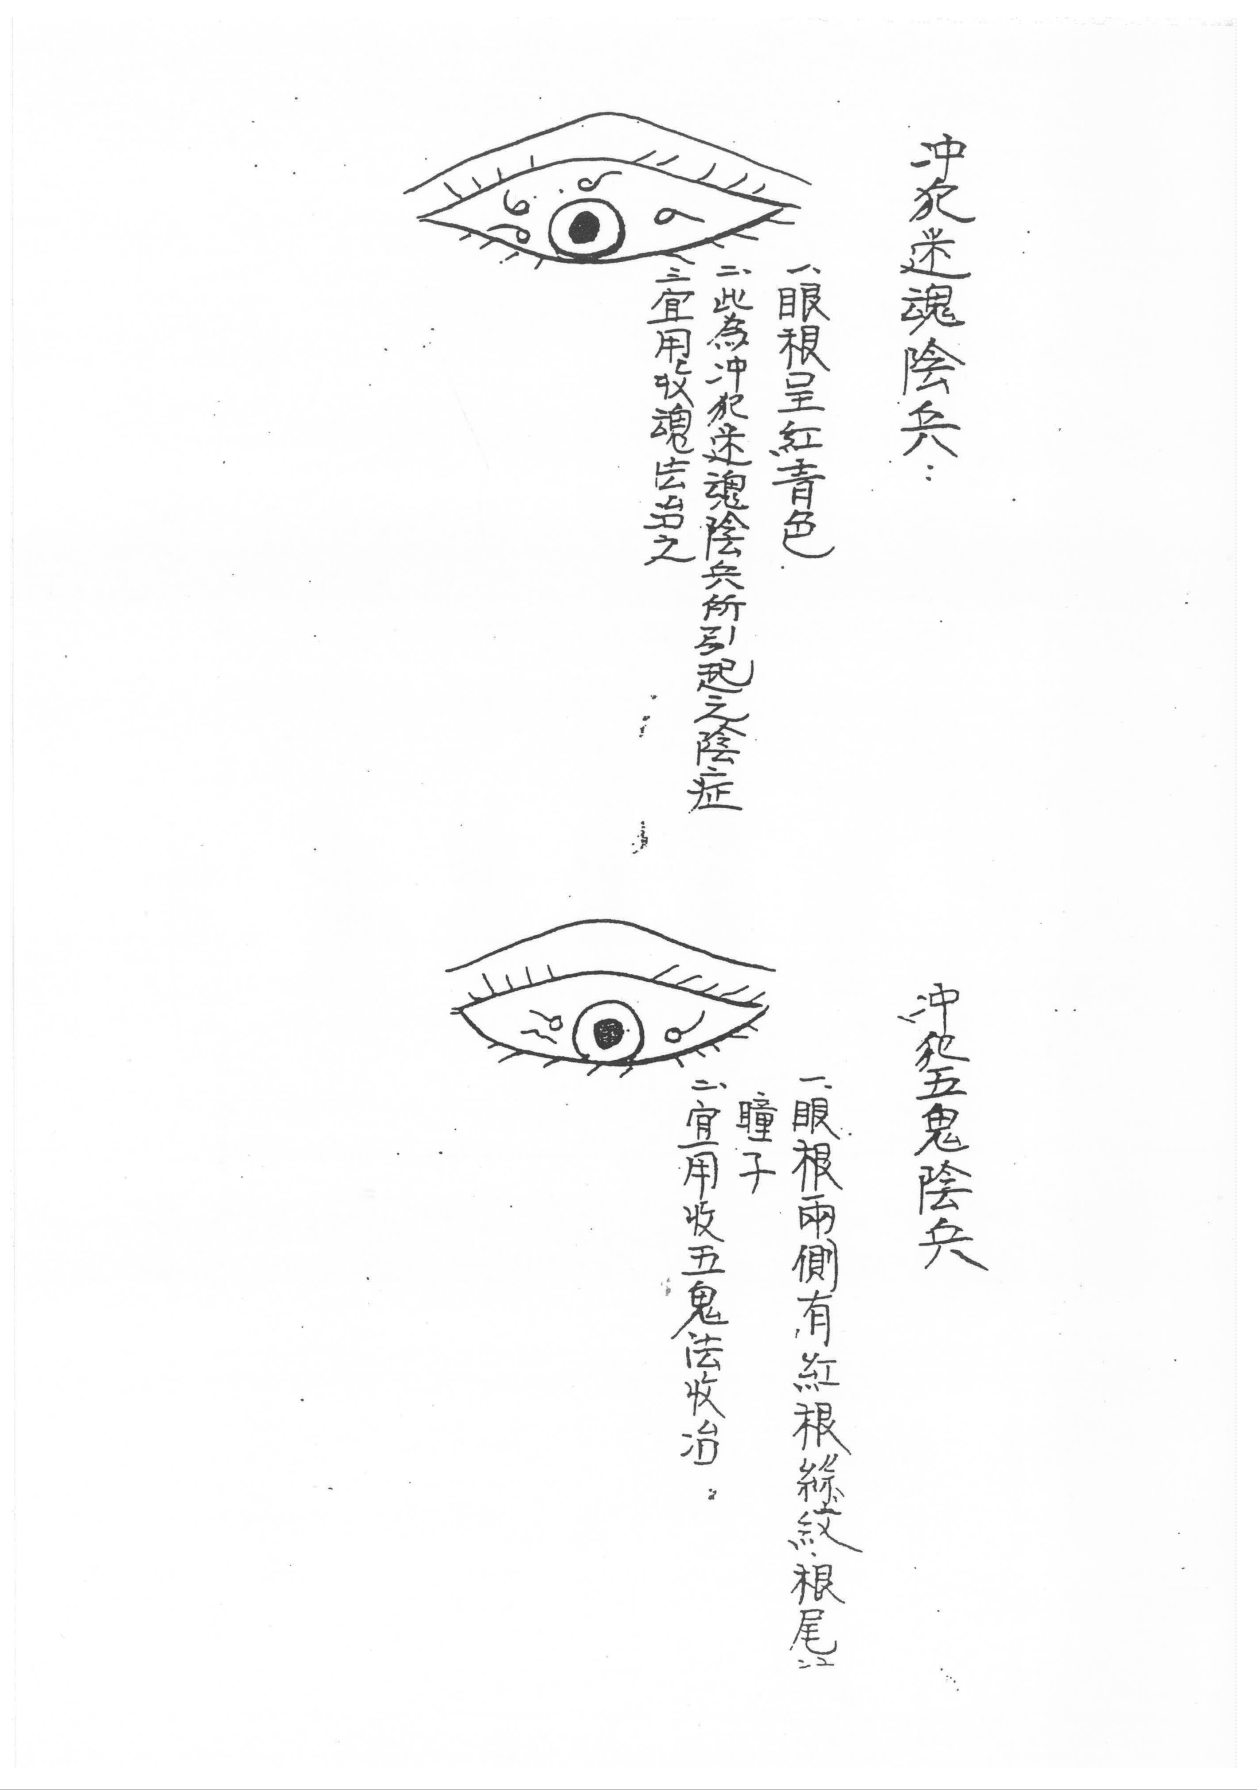 冲犯迷魂陰兵：
一、眼根呈紅青色
二、此為冲犯迷魂陰兵所引起之陰症
三宜用收魂法治之
冲犯五鬼陰兵
一、眼根兩側有紅根絲紋、根尾
瞳子
二、宜用收五鬼法收治。